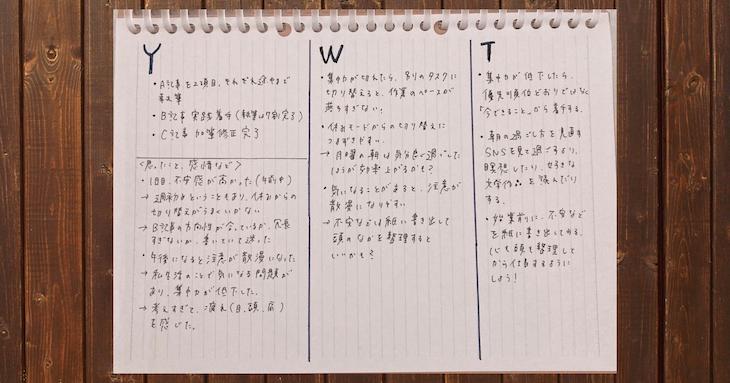 Y
・A記事を2項目、それぞれ途中まで
執筆
・B記事 実践着手(執筆は7割完了)
・C記事 加筆修正完了
<思ったこと、感情など>
・1日目、不安感が高かった(午前中)
→ 週初めということもあり、休みからの
切り替えがうまくいかない
→ B記事の方向性が合っているか、冗長
すぎないか、書いていて迷った
・午後になると注意が散漫になった
→ 私生活のことで気になる問題が
あり、集中力が低下した。
→ 考えすぎて、疲れ(目、頭、肩)
を感じた。
W
・集中力が切れたら、別のタスクに
切り替えると、作業のペースが
落ちすぎない!
・休みモードからの切り替えに
つまずきやすい。
→ 月曜の朝は気分良く過ごした
ほうが効率上がるかも?
・気になることがあると、注意が
散漫になりやすい
→ 不安などは紙に書き出して
頭のなかを整理すると
いいかも?
T
・集中力が低下したら、
優先順位どおりではなく
「今できること」から着手する。
・朝の過ごし方を見直す
SNSを見て過ごすより、
瞑想したり、好きな
文学作品を読んだり
する。
・始業前に、不安など
を紙に書き出してみる。
心も頭も整理して
から仕事するように
しよう!